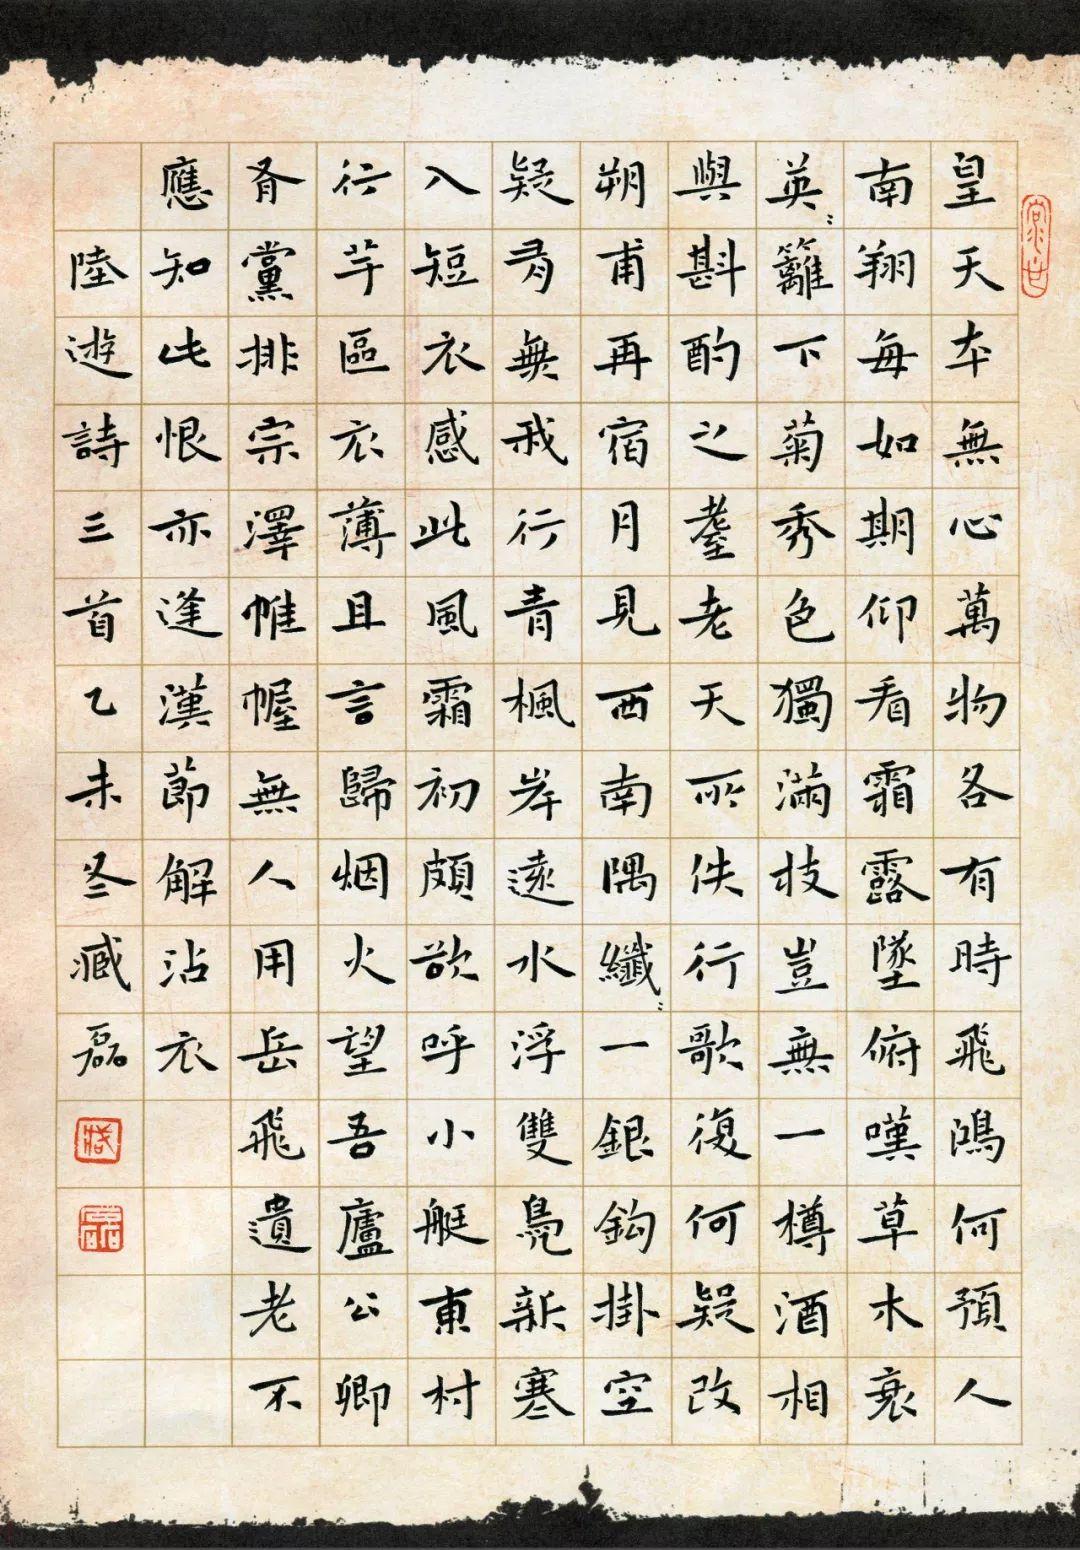 皇天本無心萬物各有時飛鴻何預人
南翔每如期仰看霜露墜俯嘆草木衰
英〻籬下菊秀色獨滿枝豈無一樽酒相
與斟酌之耋老天所佚行歌復何疑改
朔甫再宿月見西南隅纖〻一銀鉤掛空
疑有無我行青楓岸遠水浮雙鳧新寒
入短衣感此風霜初頗欲呼小艇東村
行芋區衣薄且言歸烟火望吾廬公卿
有黨排宗澤帷幄無人用岳飛遺老不
應知此恨亦逢漢節解沾衣
陸遊詩三首乙未冬臧磊
臧
磊